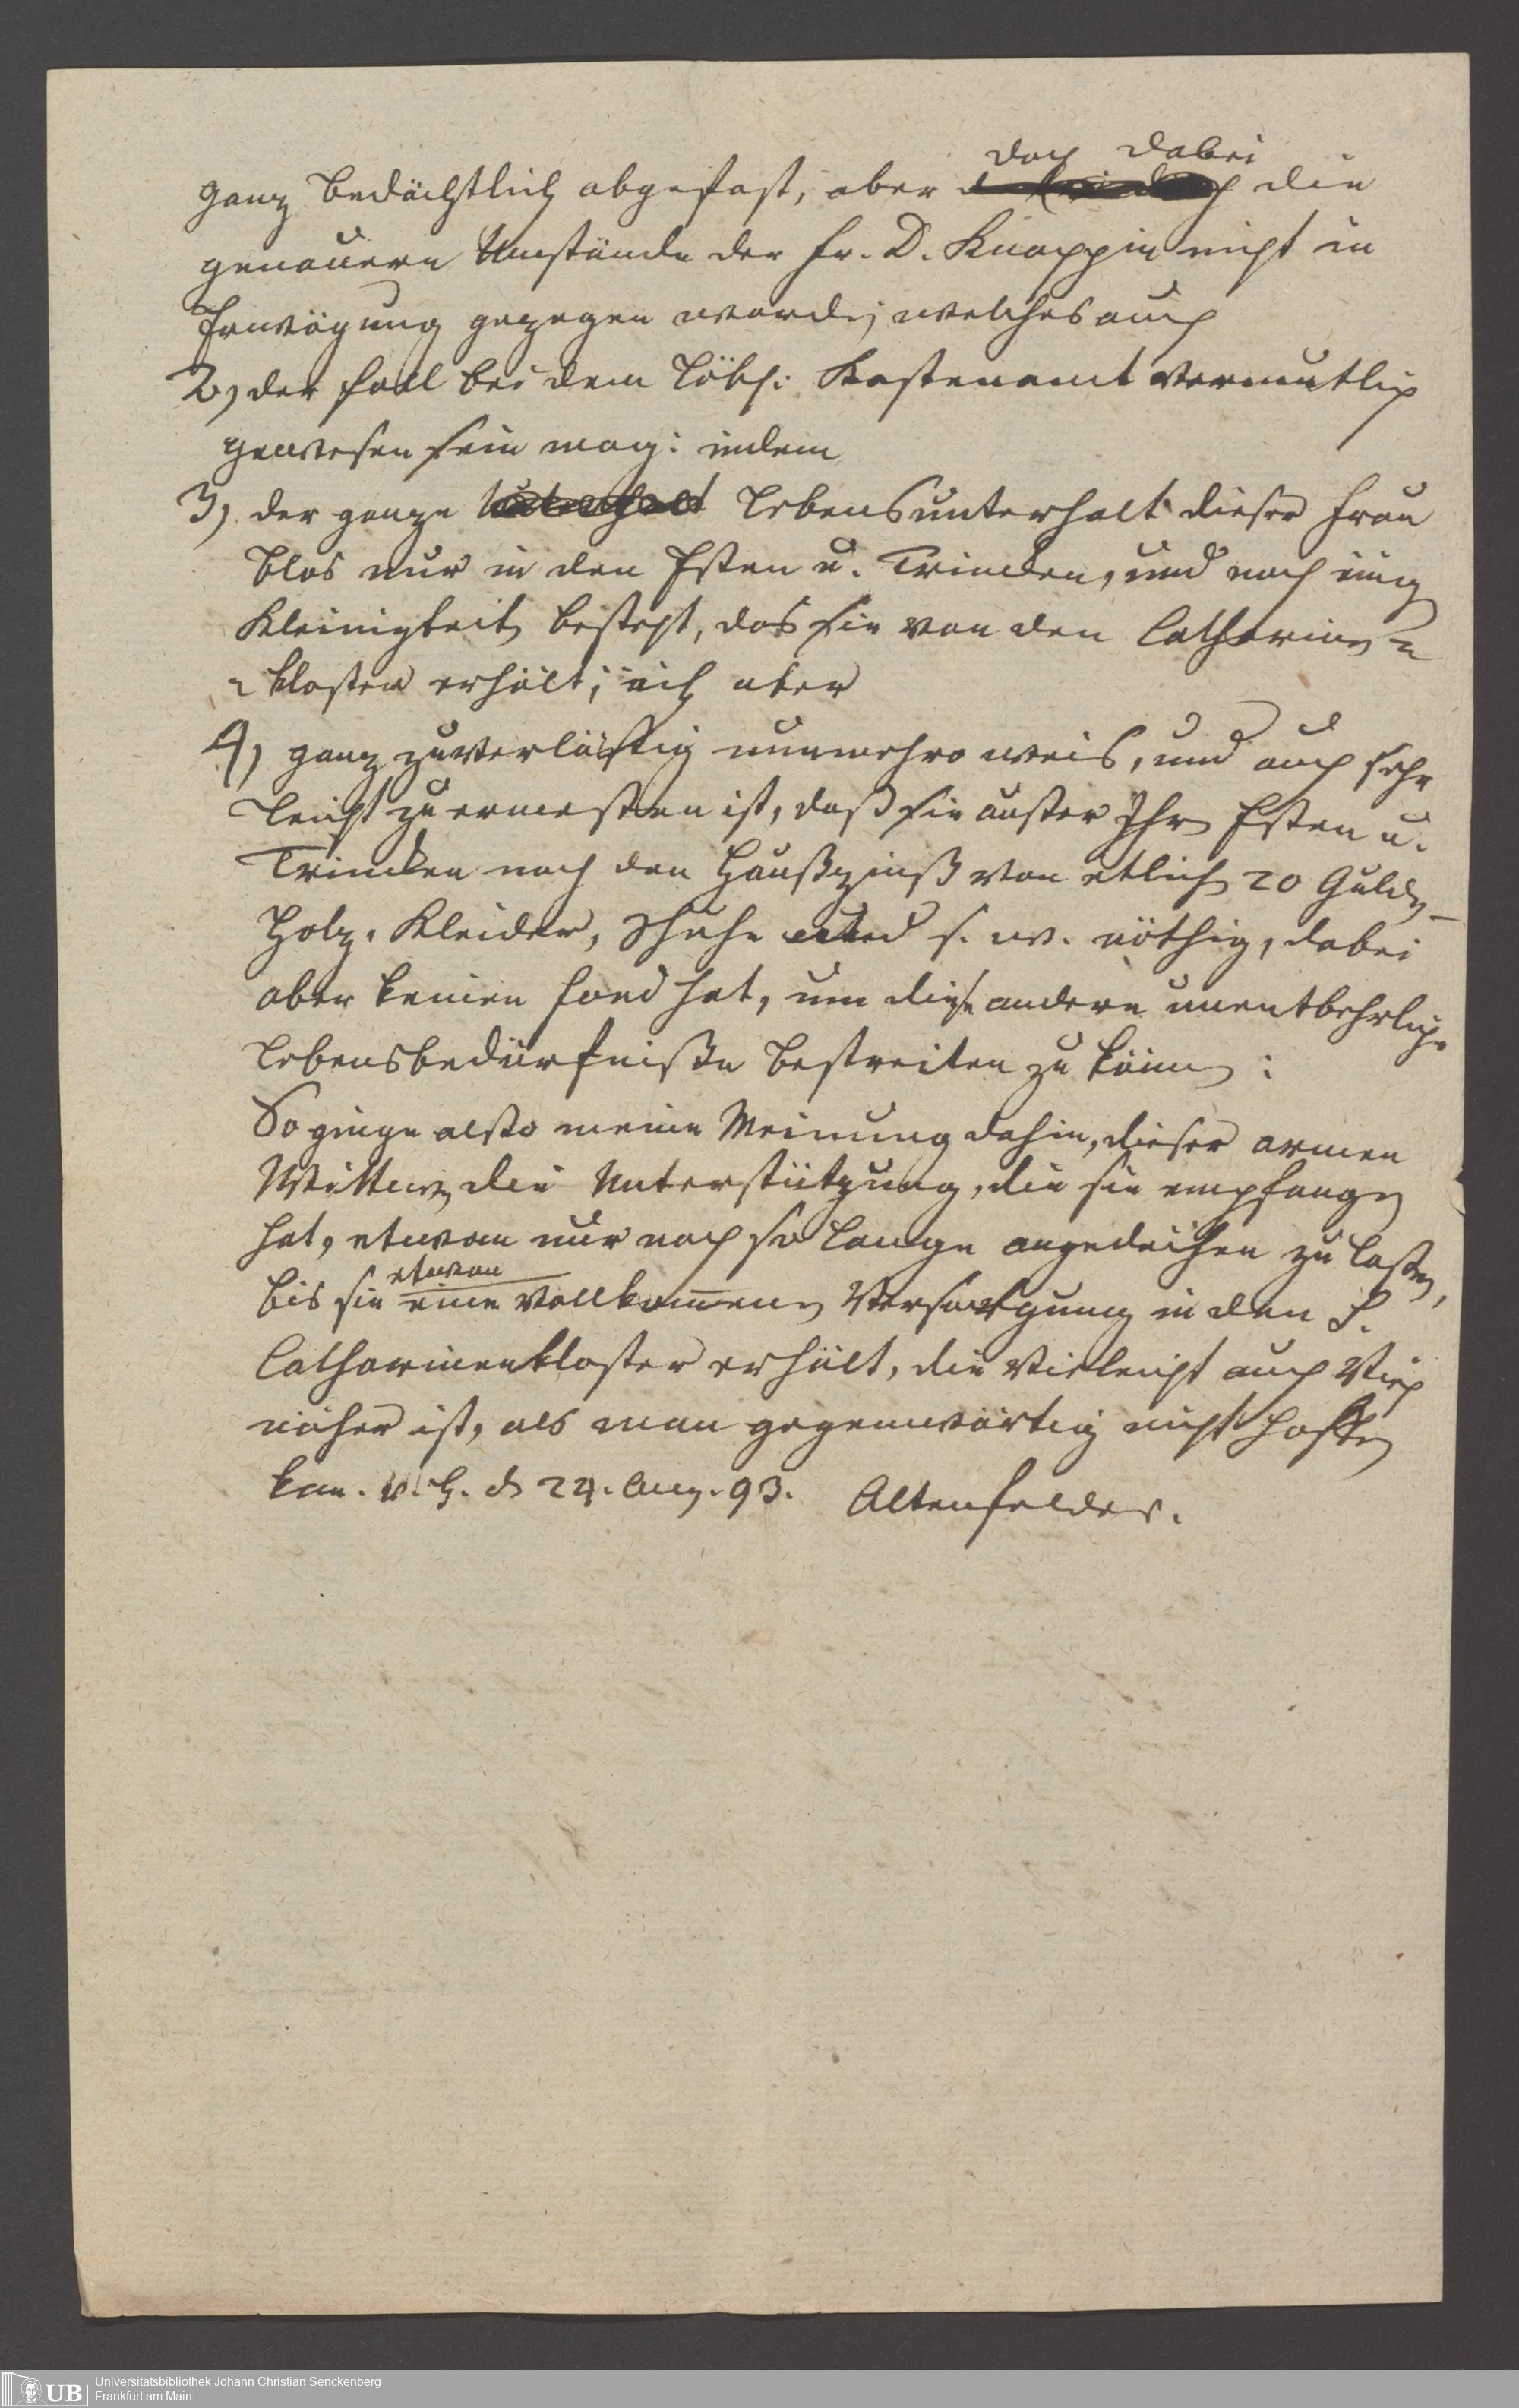 doch dabei
ganz bedächtlich abgefast, aber die
genauern Umstände der Fr. D. Knappin nicht in
Erwägung gezogen worden; welches auch
2, der Fall bei dem Löbl: Kastenamt vermutlich
gewesen sein mag: indem
3, der ganze Unterhalt Lebensunterhalt dieser Frau
blos nur in den Essen u. Trincken, und noch einig
Kleinigkeiten bestehet, das sie von den Catharinen=
=kloster erhält; ich aber
4, ganz zuverlässig nunmehro weis, und auch sehr
leicht zu ermessen ist, daß sie ausser Ihren Essen u.
Trincken noch den Haußzinß von etlich 20 Gulden,
Holz, Kleider, Schuhe und s. w. nöthig, dabei
aber keinen Fond hat, um diese andere unentbehrliche
Lebensbedürfniße bestreiten zu können:
So ginge also meine Meinung dahin, dieser armen
Wittwen die Unterstützung, die sie empfangen
hat, etwan nur noch so lange angedeihen zu lassen,
etwan
bis sie eine vollkommene Versorgung in den S.
Catharinenkloster erhält, die vieleicht auch
näher ist, als man gegenwärtig nicht hoffen
kan. d 24. Aug. 93. Altenfelder.
Universitätsbibliothek Johann Christian Senckenberg
UB Frankfurt am Main